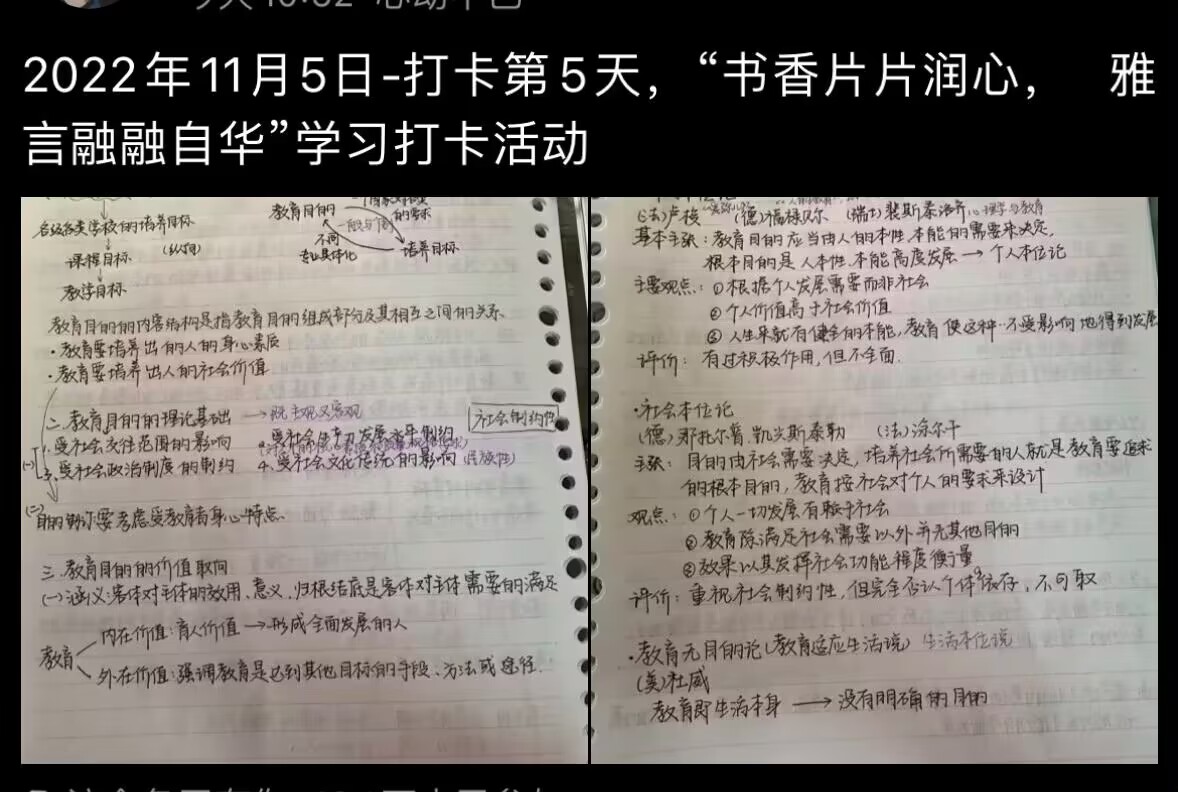 2022年11月5日-打卡第5天，“书香片片润心， 雅
言融融自华”学习打卡活动
各级各类学校的培养目标
课程目标
教学目标
教育目的
的要求
一般与个别
不同
专业具体化
培养目标
教育目的的内容结构是指教育目的组成部分及其相互之间的关系.
·教育要培养出的人的身心素质
·教育要培养出人的社会价值
二.教育目的的理论基础 → 既主观又客观
社会制约性
(一)
1.受社会交往范围的影响
3.受社会政治制度的制约
4.受社会文化传统的影响 (民族性)
(二)
目的制订要考虑受教育者身心特点.
三.教育目的的价值取向
(一)涵义:客体对主体的效用、意义，归根结底是客体对主体需要的满足
教育
内在价值:育人价值 → 形成全面发展的人
外在价值:强调教育是达到其他目标的手段、方法或途径.
(法)卢梭 (德)福禄贝尔 (瑞士)裴斯泰洛齐
基本主张:教育目的应当由人的本性.本能的需要来决定,
根本目的是人本性.本能高度发展 → 个人本位论
主要观点: ①根据个人发展需要而非社会
②个人价值高于社会价值
③人生来就有健全的本能,教育使这种…不受影响地得到发展
评价: 有过积极作用,但不全面.
·社会本位论
(德)那托尔普.凯兴斯泰勒 (法)涂尔干
主张: 目的由社会需要决定,培养社会所需要的人就是教育要追求
的根本目的,教育按社会对个人的要求来设计
观点: ①个人一切发展有赖于社会
②教育除满足社会需要以外并无其他目的
③效果以其发挥社会功能程度衡量
评价: 重视社会制约性,但完全否认个体依存,不可取
·教育无目的论(教育适应生活说) 生活本位说
(美)杜威
教育即生活本身 → 没有明确的目的